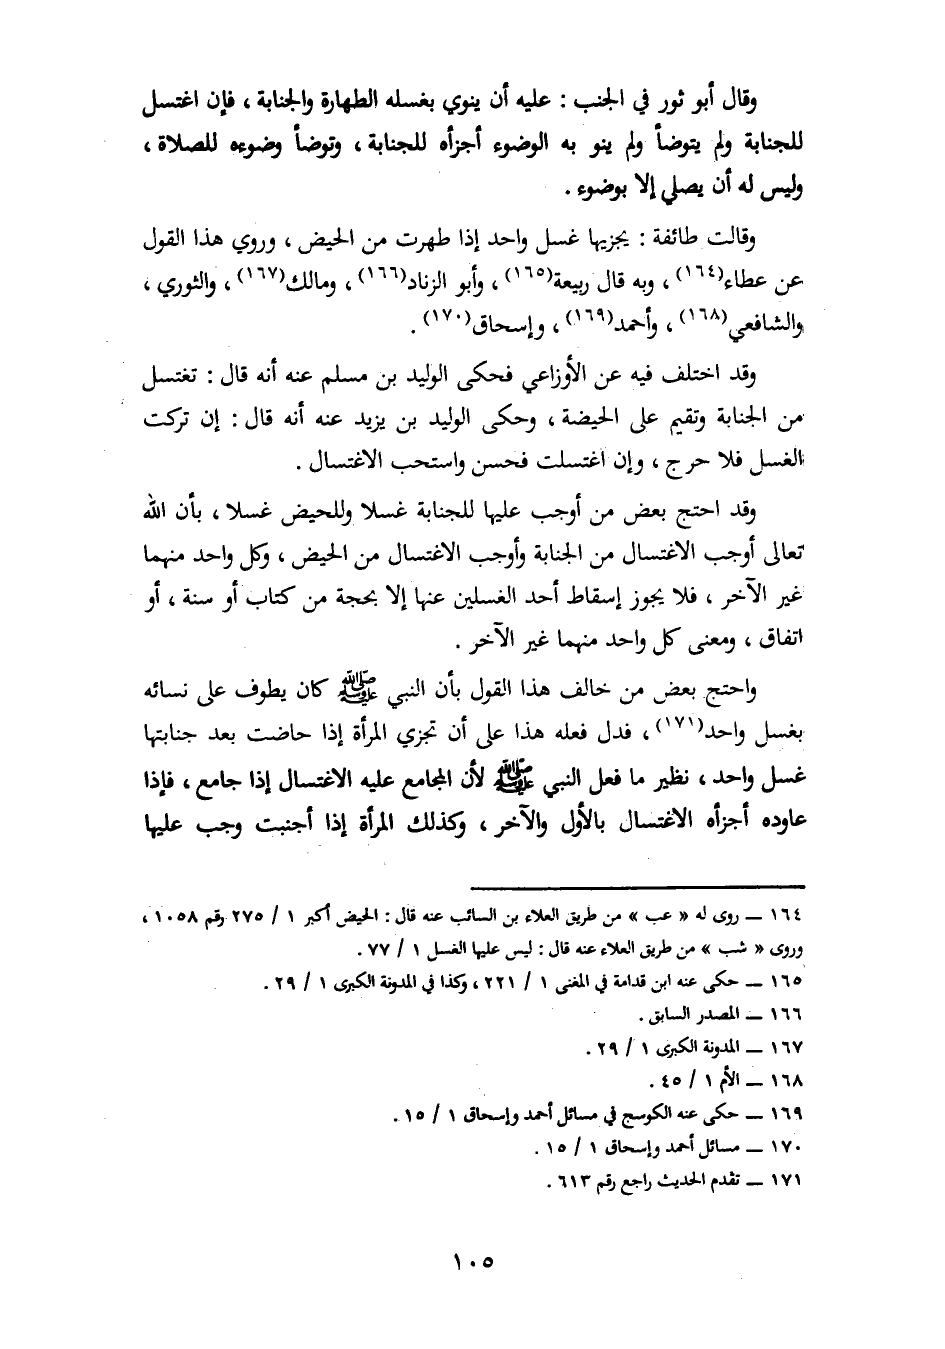 وقال أبو ثور في الجنب : عليه أن ينوي بغسله الطهارة والجنابة ، فإن اغتسل
للجنابة ولم يتوضأ ولم ينو به الوضوء أجزأه للجنابة ، وتوضأ وضوءه للصلاة ،
وليس له أن يصلي إلا بوضوء .
وقالت طائفة : يجزيها غسل واحد إذا طهرت من الحيض ، وروي هذا القول
عن عطاء(١٦٤) ، وبه قال ربيعة(١٦٥) ، وأبو الزناد(١٦٦) ، ومالك(١٦٧) ، والثوري ،
والشافعي(١٦٨) ، وأحمد(١٦٩) ، وإسحاق(١٧٠) .
وقد اختلف فيه عن الأوزاعي فحكى الوليد بن مسلم عنه أنه قال : تغتسل
من الجنابة وتقيم على الحيضة ، وحكى الوليد بن يزيد عنه أنه قال : إن تركت
الغسل فلا حرج ، وإن اغتسلت فحسن واستحب الاغتسال .
وقد احتج بعض من أوجب عليها للجنابة غسلا وللحيض غسلا ، بأن الله
تعالى أوجب الاغتسال من الجنابة وأوجب الاغتسال من الحيض ، وكل واحد منهما
غير الآخر ، فلا يجوز إسقاط أحد الغسلين عنها إلا بحجة من كتاب أو سنة ، أو
اتفاق ، ومعنى كل واحد منهما غير الآخر .
واحتج بعض من خالف هذا القول بأن النبي ﷺ كان يطوف على نسائه
بغسل واحد(١٧١) ، فدل فعله هذا على أن تجزي المرأة إذا حاضت بعد جنابتها
غسل واحد ، نظير ما فعل النبي ﷺ لأن المجامع عليه الاغتسال إذا جامع ، فإذا
عاوده أجزأه الاغتسال بالأول والآخر ، وكذلك المرأة إذا أجنبت وجب عليها
١٦٤ ــ روى له « عب » من طريق العلاء بن السائب عنه قال : الحيض أكبر ١ / ٢٧٥ رقم ١٠٥٨ ،
وروى « شب » من طريق العلاء عنه قال : ليس عليها الغسل ١ / ٧٧ .
١٦٥ ــ حكى عنه ابن قدامة في المغنى ١ / ٢٢١ ، وكذا في المدونة الكبرى ١ / ٢٩ .
١٦٦ ــ المصدر السابق .
١٦٧ ــ المدونة الكبرى ١ / ٢٩ .
١٦٨ ــ الأم ١ / ٤٥ .
١٦٩ ــ حكى عنه الكوسج في مسائل أحمد وإسحاق ١ / ١٥ .
١٧٠ ــ مسائل أحمد وإسحاق ١ / ١٥ .
١٧١ ــ تقدم الحديث راجع رقم ٦١٣ .
١٠٥